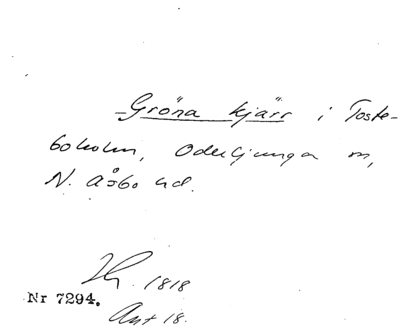 Gröna kjärr i Toste-
boholm, Oderljunga sn,
N. Åsbo hd.
1818
Nr 7294.
Ant 18.